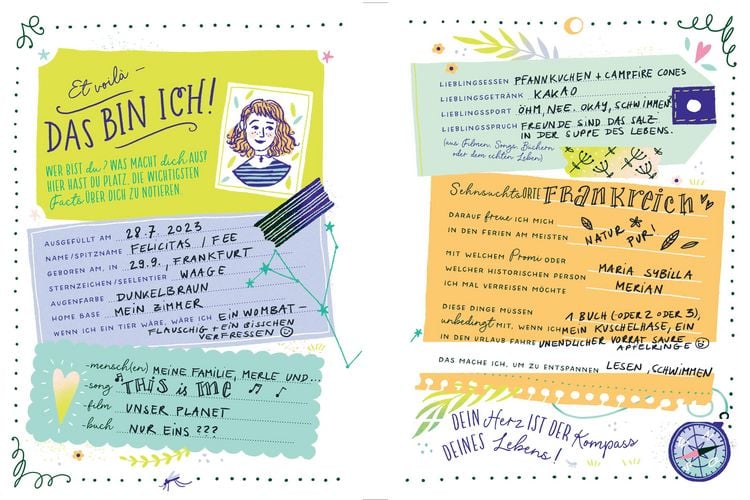 Et voilà –
DAS BIN ICH!
WER BIST du? WAS MACHT dich AUS?
HIER HAST DU PLATZ, DIE WICHTIGSTEN
Facts ÜBER DICH ZU NOTIEREN.
AUSGEFÜLLT AM 28.7.2023
NAME/SPITZNAME FELICITAS / FEE
GEBOREN AM, IN 29.9., FRANKFURT
STERNZEICHEN/SEELENTIER WAAGE
AUGENFARBE DUNKELBRAUN
HOME BASE MEIN ZIMMER
WENN ICH EIN TIER WÄRE, WÄRE ICH EIN WOMBAT –
FLAUSCHIG + EIN BISSCHEN
VERFRESSEN
-mensch(en) MEINE FAMILIE, MERLE UND...
-song THIS is ME
-film UNSER PLANET
-buch NUR EINS ???
LIEBLINGSESSEN PFANNKUCHEN + CAMPFIRE CONES
LIEBLINGSGETRÄNK KAKAO
LIEBLINGSSPORT ÖHM, NEE. OKAY, SCHWIMMEN?
LIEBLINGSSPRUCH FREUNDE SIND DAS SALZ
IN DER SUPPE DES LEBENS.
(aus Filmen, Songs, Büchern
oder dem echten Leben)
SehnsuchtsORTE FRANKREICH
DARAUF freue ICH MICH
IN DEN FERIEN AM MEISTEN NATUR PUR!
MIT WELCHEM Promi ODER
WELCHER HISTORISCHEN PERSON MARIA SYBILLA
ICH MAL VERREISEN MÖCHTE MERIAN
DIESE DINGE MÜSSEN 1 BUCH (ODER 2 ODER 3),
unbedingt MIT, WENN ICH MEIN KUSCHELHASE, EIN
IN DEN URLAUB FAHRE UNENDLICHER VORRAT SAURE
APFELRINGE
DAS MACHE ICH, UM ZU ENTSPANNEN LESEN, SCHWIMMEN
DEIN Herz IST DER Kompass
DEINES Lebens!